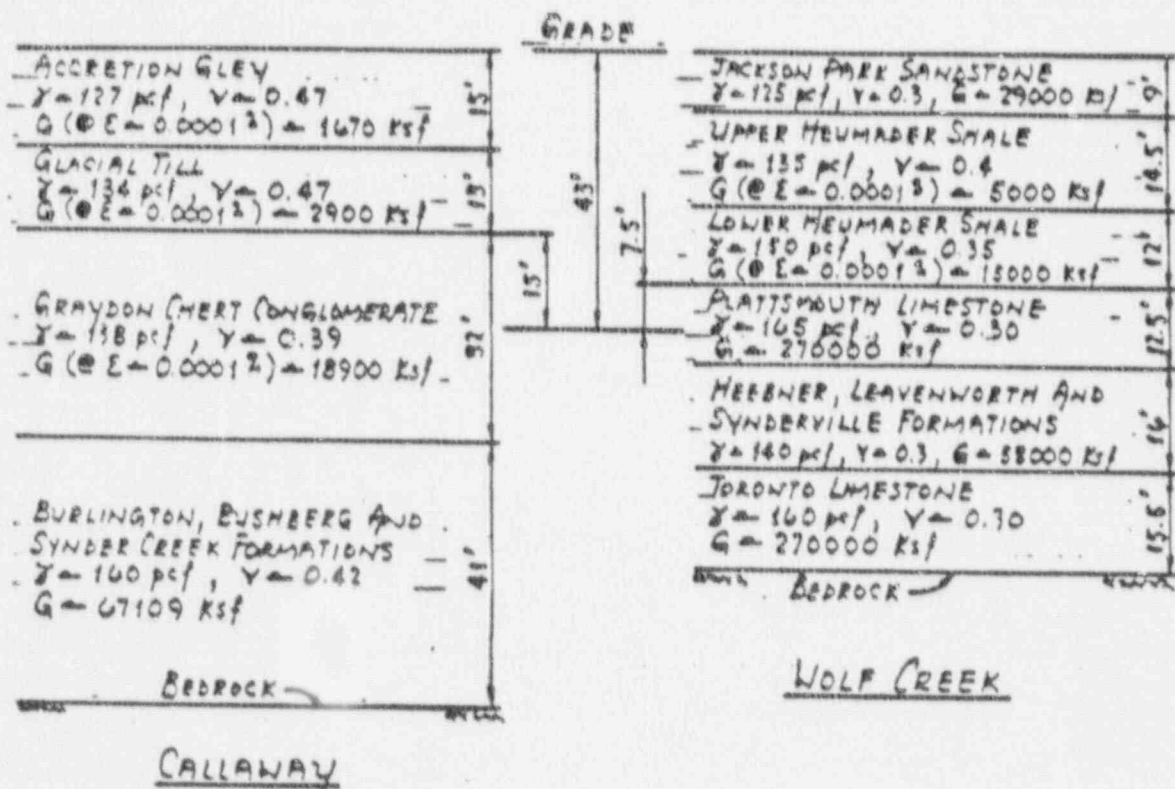 GRADE
ACCRETION GLEY
γ = 127 pcf, ν = 0.47
G (@ Ɛ = 0.0001%) = 1670 Ksf
15'
GLACIAL TILL
γ = 134 pcf, ν = 0.47
G (@ Ɛ = 0.0001%) = 2900 Ksf
13'
GRAYDON CHERT CONGLOMERATE
γ = 138 pcf, ν = 0.39
G (@ Ɛ = 0.0001%) = 18900 Ksf
32'
BURLINGTON, BUSHBERG AND
SYNDER CREEK FORMATIONS
γ = 160 pcf, ν = 0.42
G = 67109 Ksf
41'
BEDROCK
CALLAWAY
15'
43'
7.5'
JACKSON PARK SANDSTONE
γ = 125 pcf, ν = 0.3, G = 29000 Ksf
9'
UPPER HEUMADER SHALE
γ = 135 pcf, ν = 0.4
G (@ Ɛ = 0.0001%) = 5000 Ksf
14.5'
LOWER HEUMADER SHALE
γ = 150 pcf, ν = 0.35
G (@ Ɛ = 0.0001%) = 15000 Ksf
12'
PLATTSMOUTH LIMESTONE
γ = 165 pcf, ν = 0.30
G = 270000 Ksf
12.5'
HEEBNER, LEAVENWORTH AND
SYNDERVILLE FORMATIONS
γ = 140 pcf, ν = 0.3, G = 58000 Ksf
TORONTO LIMESTONE
γ = 160 pcf, ν = 0.30
G = 270000 Ksf
15.5'
BEDROCK
WOLF CREEK